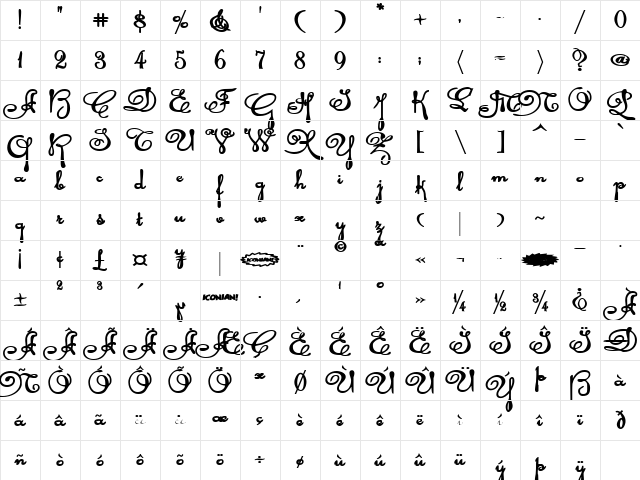 ! " # $ % & ' ( ) * + , - . / 0
1 2 3 4 5 6 7 8 9 : ; < = > ? @
A B C D E F G H I J K L M N O P
Q R S T U V W X Y Z [ \ ] ^ _ `
a b c d e f g h i j k l m n o p
q r s t u v w x y z ( | ) ~
¡ ¢ £ ¤ ¥ | ICONIAN! ¨ © ª « ¬ - ¯ °
± ² ³ ´ ICONIAN! · ¸ ¹ º » ¼ ½ ¾ ¿ À
Á Â Ã Ä Å Æ Ç È É Ê Ë Ì Í Î Ï Ð
Ñ Ò Ó Ô Õ Ö × Ø Ù Ú Û Ü Ý Þ ß à
á â ã ä å æ ç è é ê ë ì í î ï ð
ñ ò ó ô õ ö ÷ ø ù ú û ü ý þ ÿ